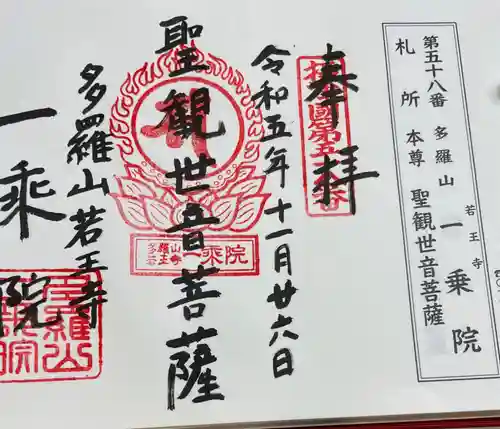 第五十八番 多羅山 若王寺 一乗院
札所 本尊 聖観世音菩薩
奉拝
令和五年十一月廿六日
聖観世音菩薩
多羅山
若王寺
一乗院
多羅山若王寺
一乗院